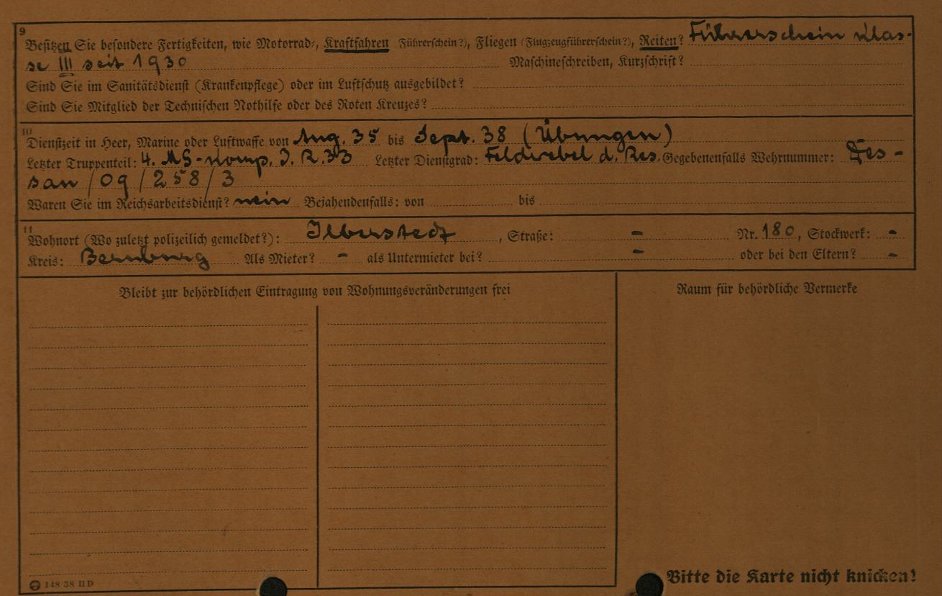 9
Besitzen Sie besondere Fertigkeiten, wie Motorrad-, Kraftfahren (Führerschein?), Fliegen (Flugzeugführerschein?), Reiten? Führerschein Klas-
se III seit 1930 Maschineschreiben, Kurzschrift?
Sind Sie im Sanitätsdienst (Krankenpflege) oder im Luftschutz ausgebildet?
Sind Sie Mitglied der Technischen Nothilfe oder des Roten Kreuzes?
10
Dienstzeit in Heer, Marine oder Luftwaffe von Aug. 35 bis Sept. 38 (Übungen)
Letzter Truppenteil: 4. MG-Komp. I. R. 33 Letzter Dienstgrad: Feldwebel d. Res. Gegebenenfalls Wehrnummer: Des-
sau/09/258/3
Waren Sie im Reichsarbeitsdienst? nein Bejahendenfalls: von bis
11
Wohnort (Wo zuletzt polizeilich gemeldet?): Ilberstedt, Straße: - Nr. 180, Stockwerk: -
Kreis: Bernburg Als Mieter? - als Untermieter bei? - oder bei den Eltern? -
Bleibt zur behördlichen Eintragung von Wohnungsveränderungen frei Raum für behördliche Vermerke
148 38 II D
Bitte die Karte nicht knicken!